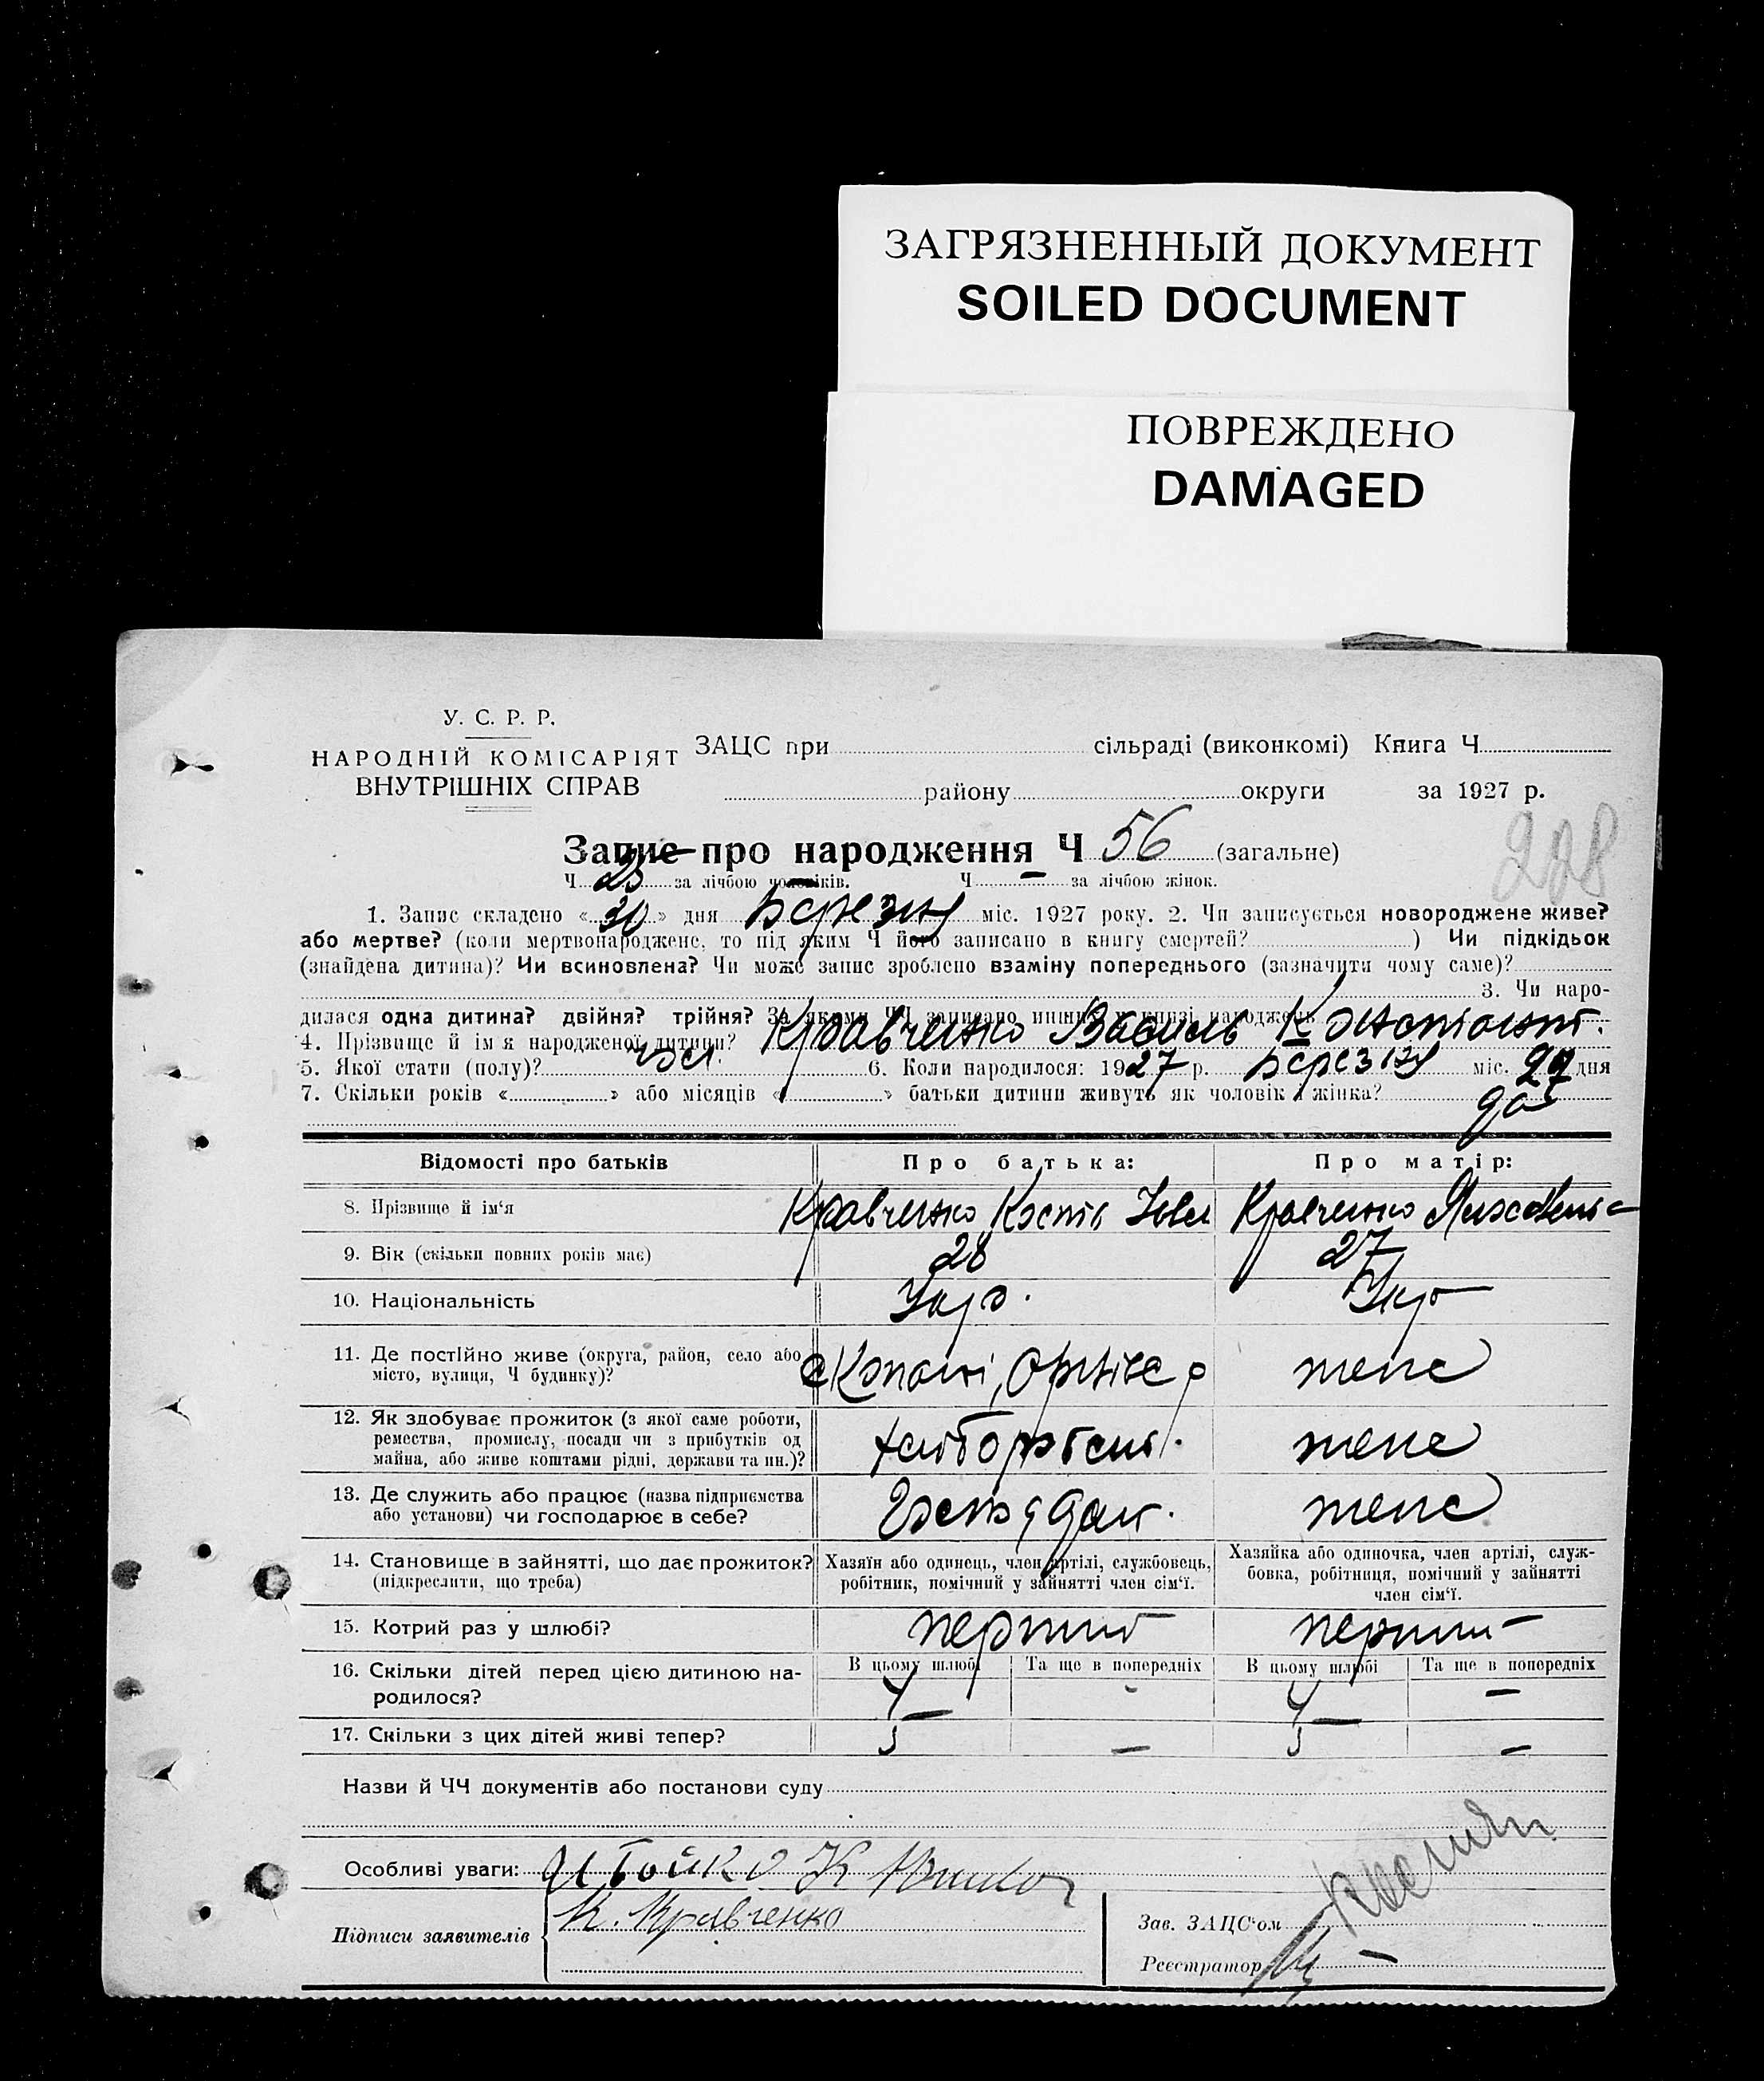 ЗАГРЯЗНЕННЫЙ ДОКУМЕНТ
SOILED DOCUMENT
ПОВРЕЖДЕНО
DAMAGED
У. С. Р. Р.
НАРОДНІЙ КОМІСАРІЯТ
ВНУТРІШНІХ СПРАВ
ЗАЦС при сільраді (виконкомі) Книга Ч.
району округи за 1927 р.
228
Запис про народження Ч 56 (загальне)
Ч. 23 за лічбою чоловіків. Ч. — за лічбою жінок.
1. Запис складено « 30 » дня Березня міс. 1927 року. 2. Чи записується новороджене живе?
або мертве? (коли мертвонароджене, то під яким Ч його записано в книгу смертей? ) Чи підкідьок
(знайдена дитина)? Чи всиновлена? Чи може запис зроблено взаміну попереднього (зазначити чому саме)?
3. Чи наро-
дилася одна дитина? двійня? трійня? За якими ЧЧ записано инших у книзі народжень
4. Прізвище й ім'я народженої дитини? Кравченко Василь Костянт.
5. Якої стати (полу)? чол. 6. Коли народилося: 1927 р. Березня міс. дня
7. Скільки років « » або місяців « » батьки дитини живуть як чоловік і жінка?
Відомості про батьків Про батька: Про матір:
8. Прізвище й ім'я Кравченко Кость Кравченко
9. Вік (скільки повних років має) 28 27
10. Національність Укр. Укр
11. Де постійно живе (округа, район, село або
місто, вулиця, Ч будинку)? теле
12. Як здобуває прожиток (з якої саме роботи,
ремества, промислу, посади чи з прибутків од
майна, або живе коштами рідні, держави та ин.)? хлібороб
13. Де служить або працює (назва підприємства
або установи) чи господарює в себе?
14. Становище в зайнятті, що дає прожиток?
(підкреслити, що треба)
Хазяїн або одинець, член артілі, службовець,
робітник, помічний у зайнятті член сім'ї.
Хазяйка або одиночка, член артілі, служ-
бовка, робітниця, помічний у зайнятті
член сім'ї.
15. Котрий раз у шлюбі? перший перший
16. Скільки дітей перед цією дитиною на-
родилося?
В цьому шлюбі Та ще в попередніх В цьому шлюбі Та ще в попередніх
4 - 4 —
17. Скільки з цих дітей живі тепер? — —
Назви й ЧЧ документів або постанови суду
Особливі уваги:
Підписи заявителів К. Кравченко
Зав. ЗАЦС'ом
Реєстратор